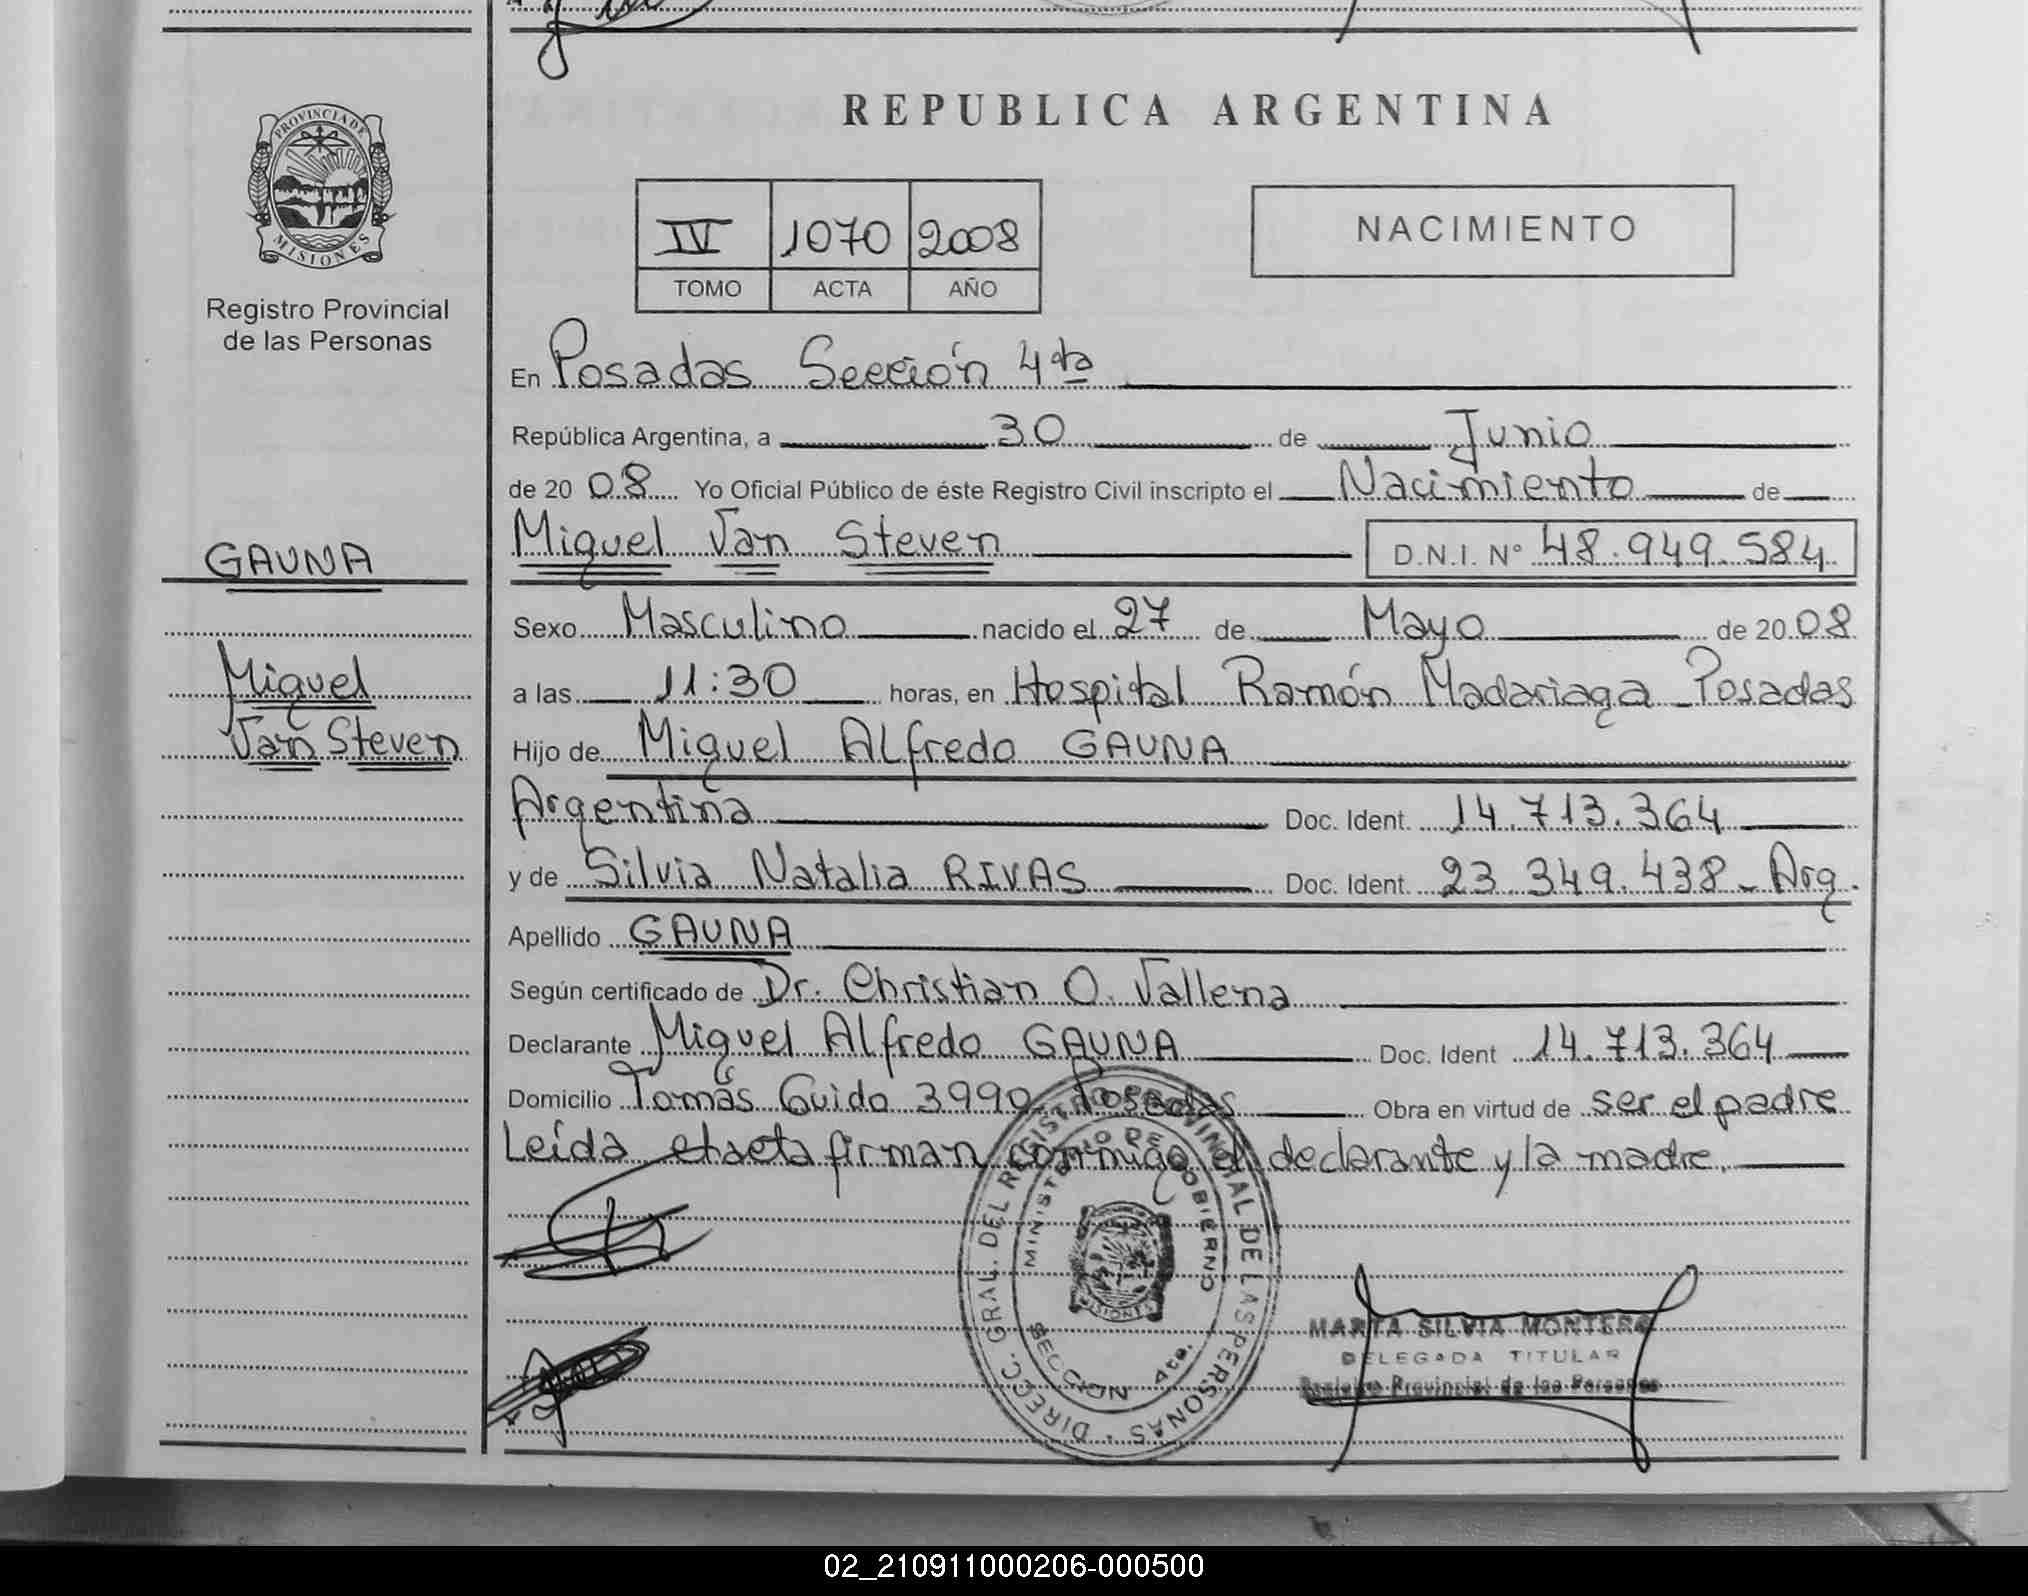 PROVINCIA DE
MISIONES
Registro Provincial
de las Personas
GAUNA
Miguel
Van Steven
REPUBLICA ARGENTINA
IV 1070 2008
TOMO ACTA AÑO
NACIMIENTO
En Posadas Sección 4ta
República Argentina, a 30 de Junio
de 20 08 Yo Oficial Público de éste Registro Civil inscripto el Nacimiento de
Miguel Van Steven D.N.I. N° 48.949.584
Sexo Masculino nacido el 27 de Mayo de 20 08
a las 11:30 horas, en Hospital Ramón Madariaga - Posadas
Hijo de Miguel Alfredo GAUNA
Argentina Doc. Ident. 14.713.364
y de Silvia Natalia RIVAS Doc. Ident. 23.349.438 - Arg.
Apellido GAUNA
Según certificado de Dr. Christian O. Vallena
Declarante Miguel Alfredo GAUNA Doc. Ident 14.713.364
Domicilio Tomás Guido 3990 - Posadas Obra en virtud de ser el padre
Leída el acta firman conmigo el declarante y la madre.
DIRECC. GRAL. DEL REGISTRO PROVINCIAL DE LAS PERSONAS
MINISTERIO DE GOBIERNO
MISIONES
SECCION 4ta.
MARTA SILVIA MONTERO
DELEGADA TITULAR
Registro Provincial de las Personas
02_210911000206-000500